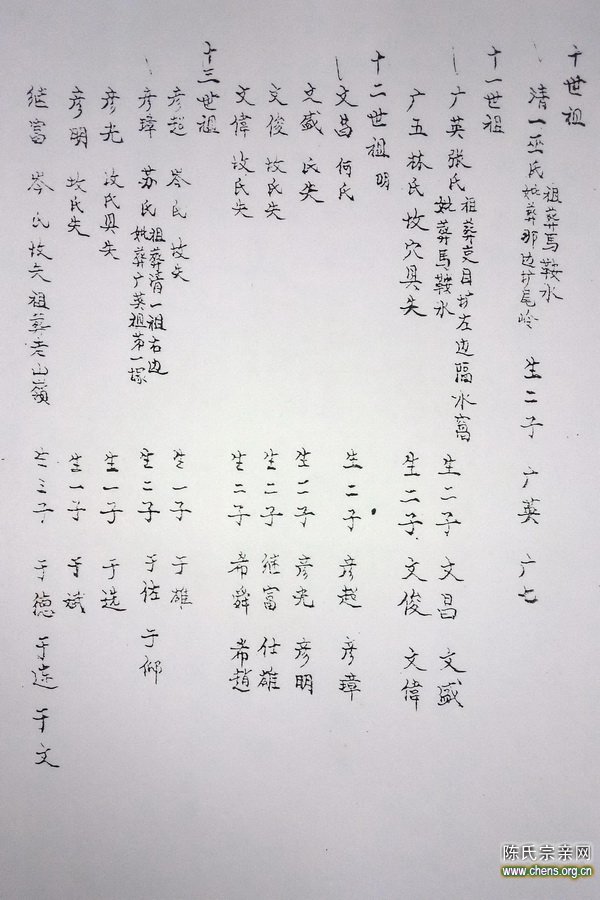 十世祖
清一 巫氏 祖葬馬鞍水 妣葬那边圹尾岭 生二子 广英 广七
十一世祖
广英 张氏 祖葬茭目圹左边隔水窩 妣葬馬鞍水 生二子 文昌 文盛
广五 林氏 坟穴具失 生二子 文俊 文偉
十二世祖 明
文昌 何氏 生二子 彦超 彦璋
文盛 氏失 生二子 彦光 彦明
文俊 坟氏失 生二子 继富 仕雄
文偉 坟氏失 生二子 希舜 希趙
十三世祖
彦超 岑氏 坟失 生一子 于雄
彦璋 苏氏 祖葬清一祖右边 妣葬广英祖第一塚 生二子 于佐 于仰
彦光 坟氏具失 生一子 于选
彦明 坟氏失 生一子 于斌
继富 岑氏 坟失 祖葬老山嶺 生三子 于德 于 于文
陈氏宗亲网
www.chens.org.cn